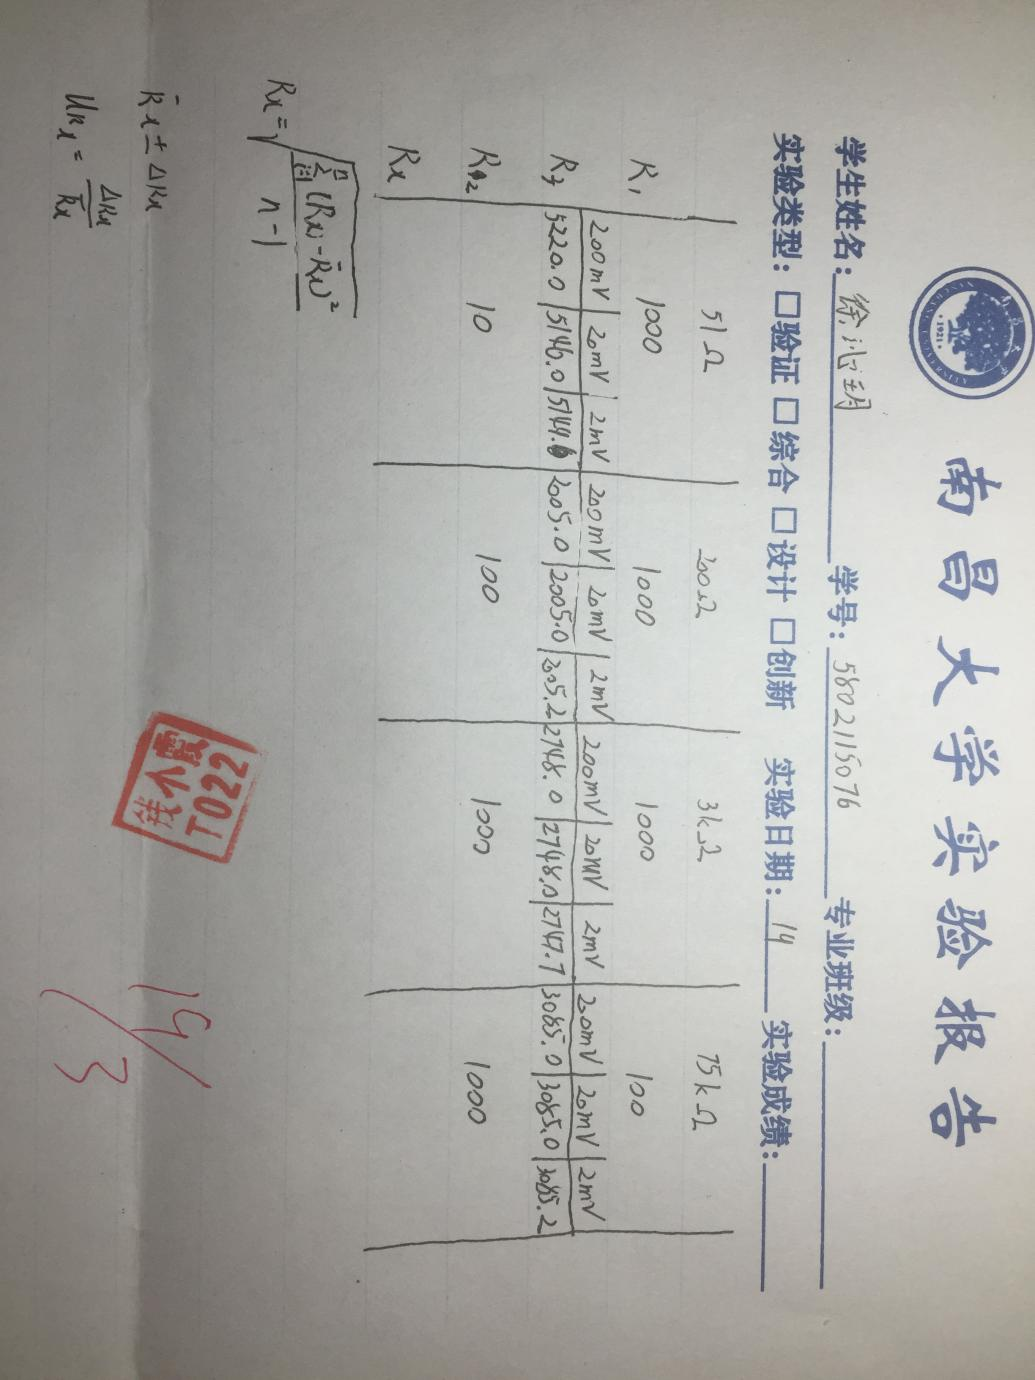 南昌大学实验报告
学生姓名: 学号: 5802115076 专业班级:
实验类型: □验证 □综合 □设计 □创新 实验日期: 19 实验成绩:
51Ω 200Ω 3kΩ 75kΩ
R1 1000 1000 1000 100
200mV 20mV 2mV 200mV 20mV 2mV 200mV 20mV 2mV 200mV 20mV 2mV
R3 5220.0 5146.0 5144.6 2005.0 2005.0 2005.2 2748.0 2748.0 2747.7 3085.0 3085.0 3085.2
R2 10 100 1000 1000
Rx
Rx = √(∑(Rxi - R̄x)² / n-1)
R̄x ± ΔRx
URx = ΔRx / R̄x
T022
19/3